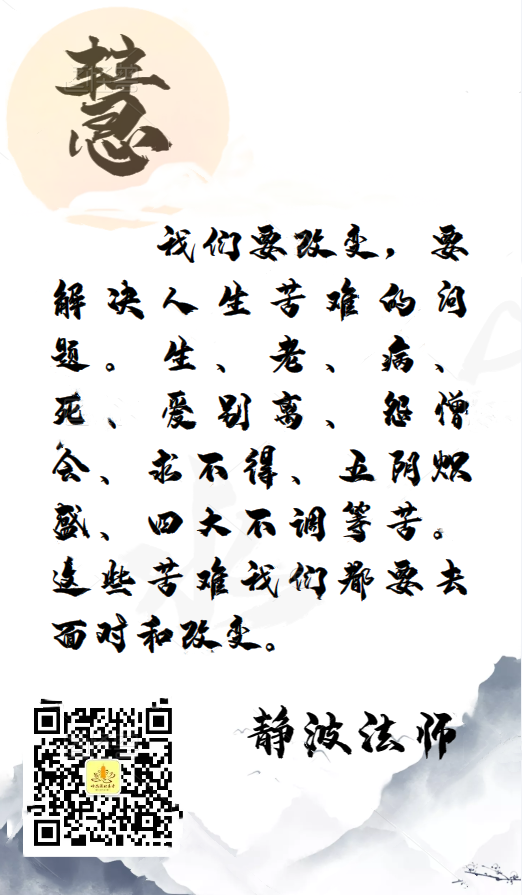 慧
我们要改变，要
解决人生苦难的问
题。生、老、病、
死、爱别离、怨憎
会、求不得、五阴炽
盛、四大不调等苦。
这些苦难我们都要去
面对和改变。
静波法师